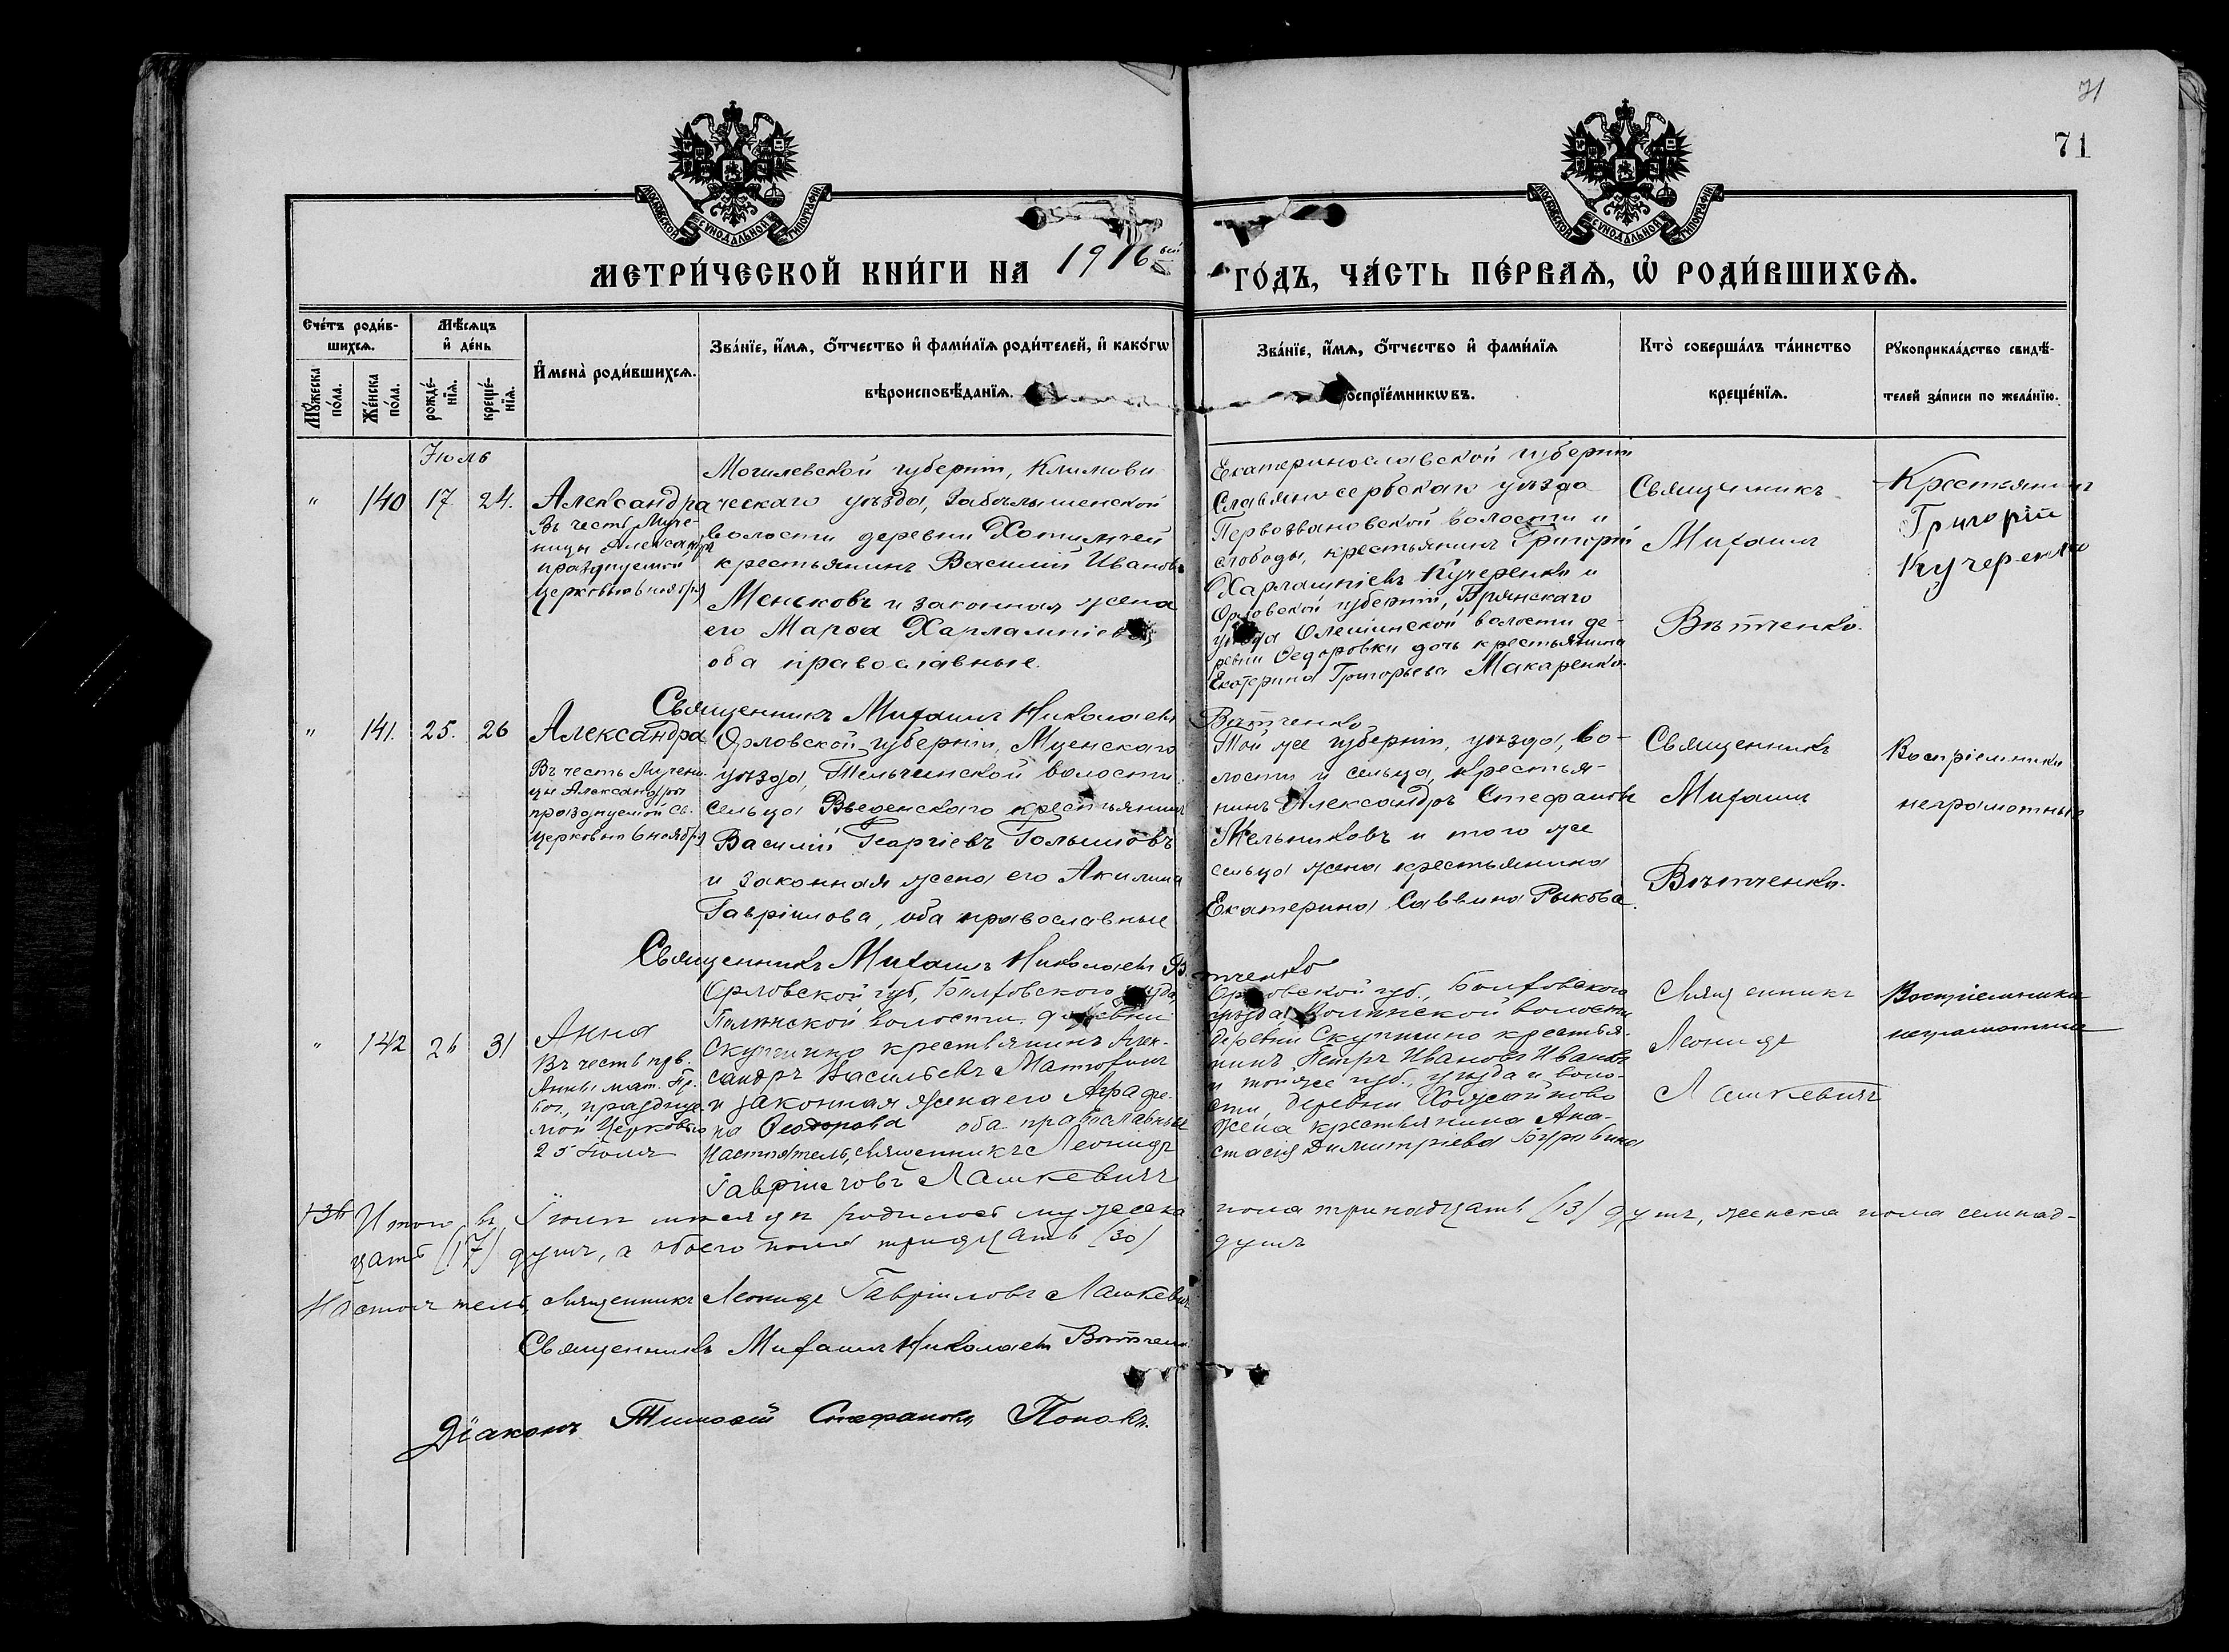 71
71
МОСКОВСКОЙ СѴНОДАЛЬНОЙ ТИПОГРАФІИ
МОСКОВСКОЙ СѴНОДАЛЬНОЙ ТИПОГРАФІИ
МЕТРИ́ЧЕСКОЙ КНИ́ГИ НА 1916 ГО́ДЪ, ЧА́СТЬ ПЕ́РВАѦ, Ѽ РОДИ́ВШИХСѦ.
Сче́тъ роди́в-
шихсѧ.
Мꙋ́жеска по́ла.
Же́нска по́ла.
Мѣ́сѧцъ
и҆ де́нь
рожде́-
нїѧ.
креще́-
нїѧ.
И҆мена̀ роди́вшихсѧ.
Зва́нїе, и҆́мѧ, ѻ҆́тчество и҆ фами́лїѧ роди́телей, и҆ како́гѡ
вѣроисповѣ́данїѧ.
Зва́нїе, и҆́мѧ, ѻ҆́тчество и҆ фами́лїѧ
воспрїе́мникѡвъ.
Кто̀ соверша́лъ та́инство
креще́нїѧ.
Рꙋкоприкла́дство свидѣ́-
телей за́писи по жела́нїю.
Іюль
" 140 17 24.
Александра
Въ честь Муче-
ницы Александры
празднуемой
Церковью 6 ноября
Могилевской губерніи, Климови
ческаго уѣзда, Забѣлышенской
волости деревни Хотимичей
крестьянинъ Василій Ивановъ
Меньковъ и законная жена
его Марѳа Харлампіева,
оба православные.
Екатеринославской губерніи
Славяносербскаго уѣзда
Первозвановской волости и
слободы, крестьянинъ Григорій
Харлампіевъ Кучеренко и
Орловской губерніи, Брянскаго
уѣзда Олешинской волости де-
ревни Ѳедоровки дочь крестьянина
Екатерина Григорьева Макаренко.
Священникъ
Михаилъ
Вѣтченко.
Крестьянинъ
Григорій
Кучеренко
Священникъ Михаилъ Николаевъ Вѣтченко
" 141. 25. 26
Александра
Въ честь Мучени-
цы Александры
празднуемой Св.
Церковью 6 ноября
Орловской губерніи, Мценскаго
уѣзда, Тельченской волости
сельца Введенскаго крестьянинъ
Василій Георгіевъ Голышовъ
и законная жена его Акилина
Гавріилова, оба православные
Той же губерніи, уѣзда, во-
лости и сельца, крестья-
нинъ Александръ Стефановъ
Мельниковъ и того же
сельца жена крестьянина
Екатерина Саввина Рыкова.
Священникъ
Михаилъ
Вѣтченко.
Воспріемники
неграмотные
Священникъ Михаилъ Николаевъ Вѣтченко
" 142 26 31
Анна
Въ честь прв.
Анны мат. Пр.
Бог., празднуе-
мой Церковью
25 Іюля
Орловской губ., Болховского уѣзда,
волости деревни
Скупшино крестьянинъ Алек-
сандръ Васильевъ Матюхинъ
и законная жена его Аграфе-
на Ѳеодорова оба православные
Настоятель, священникъ Леонидъ
Гавріиловъ Лашкевичъ
Орловской губ., Болховского
уѣзда волости
деревни Скупшино крестья-
нинъ Петръ Ивановъ Ивановъ
и той же губ., уѣзда и воло-
сти, деревни
жена крестьянина Ана-
стасія Димитріева
Священникъ
Леонидъ
Лашкевичъ
Воспріемники
неграмотные
Итого въ Іюлѣ мѣсяцѣ родилось мужеска пола тринадцать (13) душъ, женска пола семнад-
цать (17) душъ, а обоего пола тридцать (30) душъ
Настоятель, священникъ Леонидъ Гавріиловъ Лашкевичъ
Священникъ Михаилъ Николаевъ Вѣтченко
Діаконъ Тимоѳей Стефановъ Поповъ.